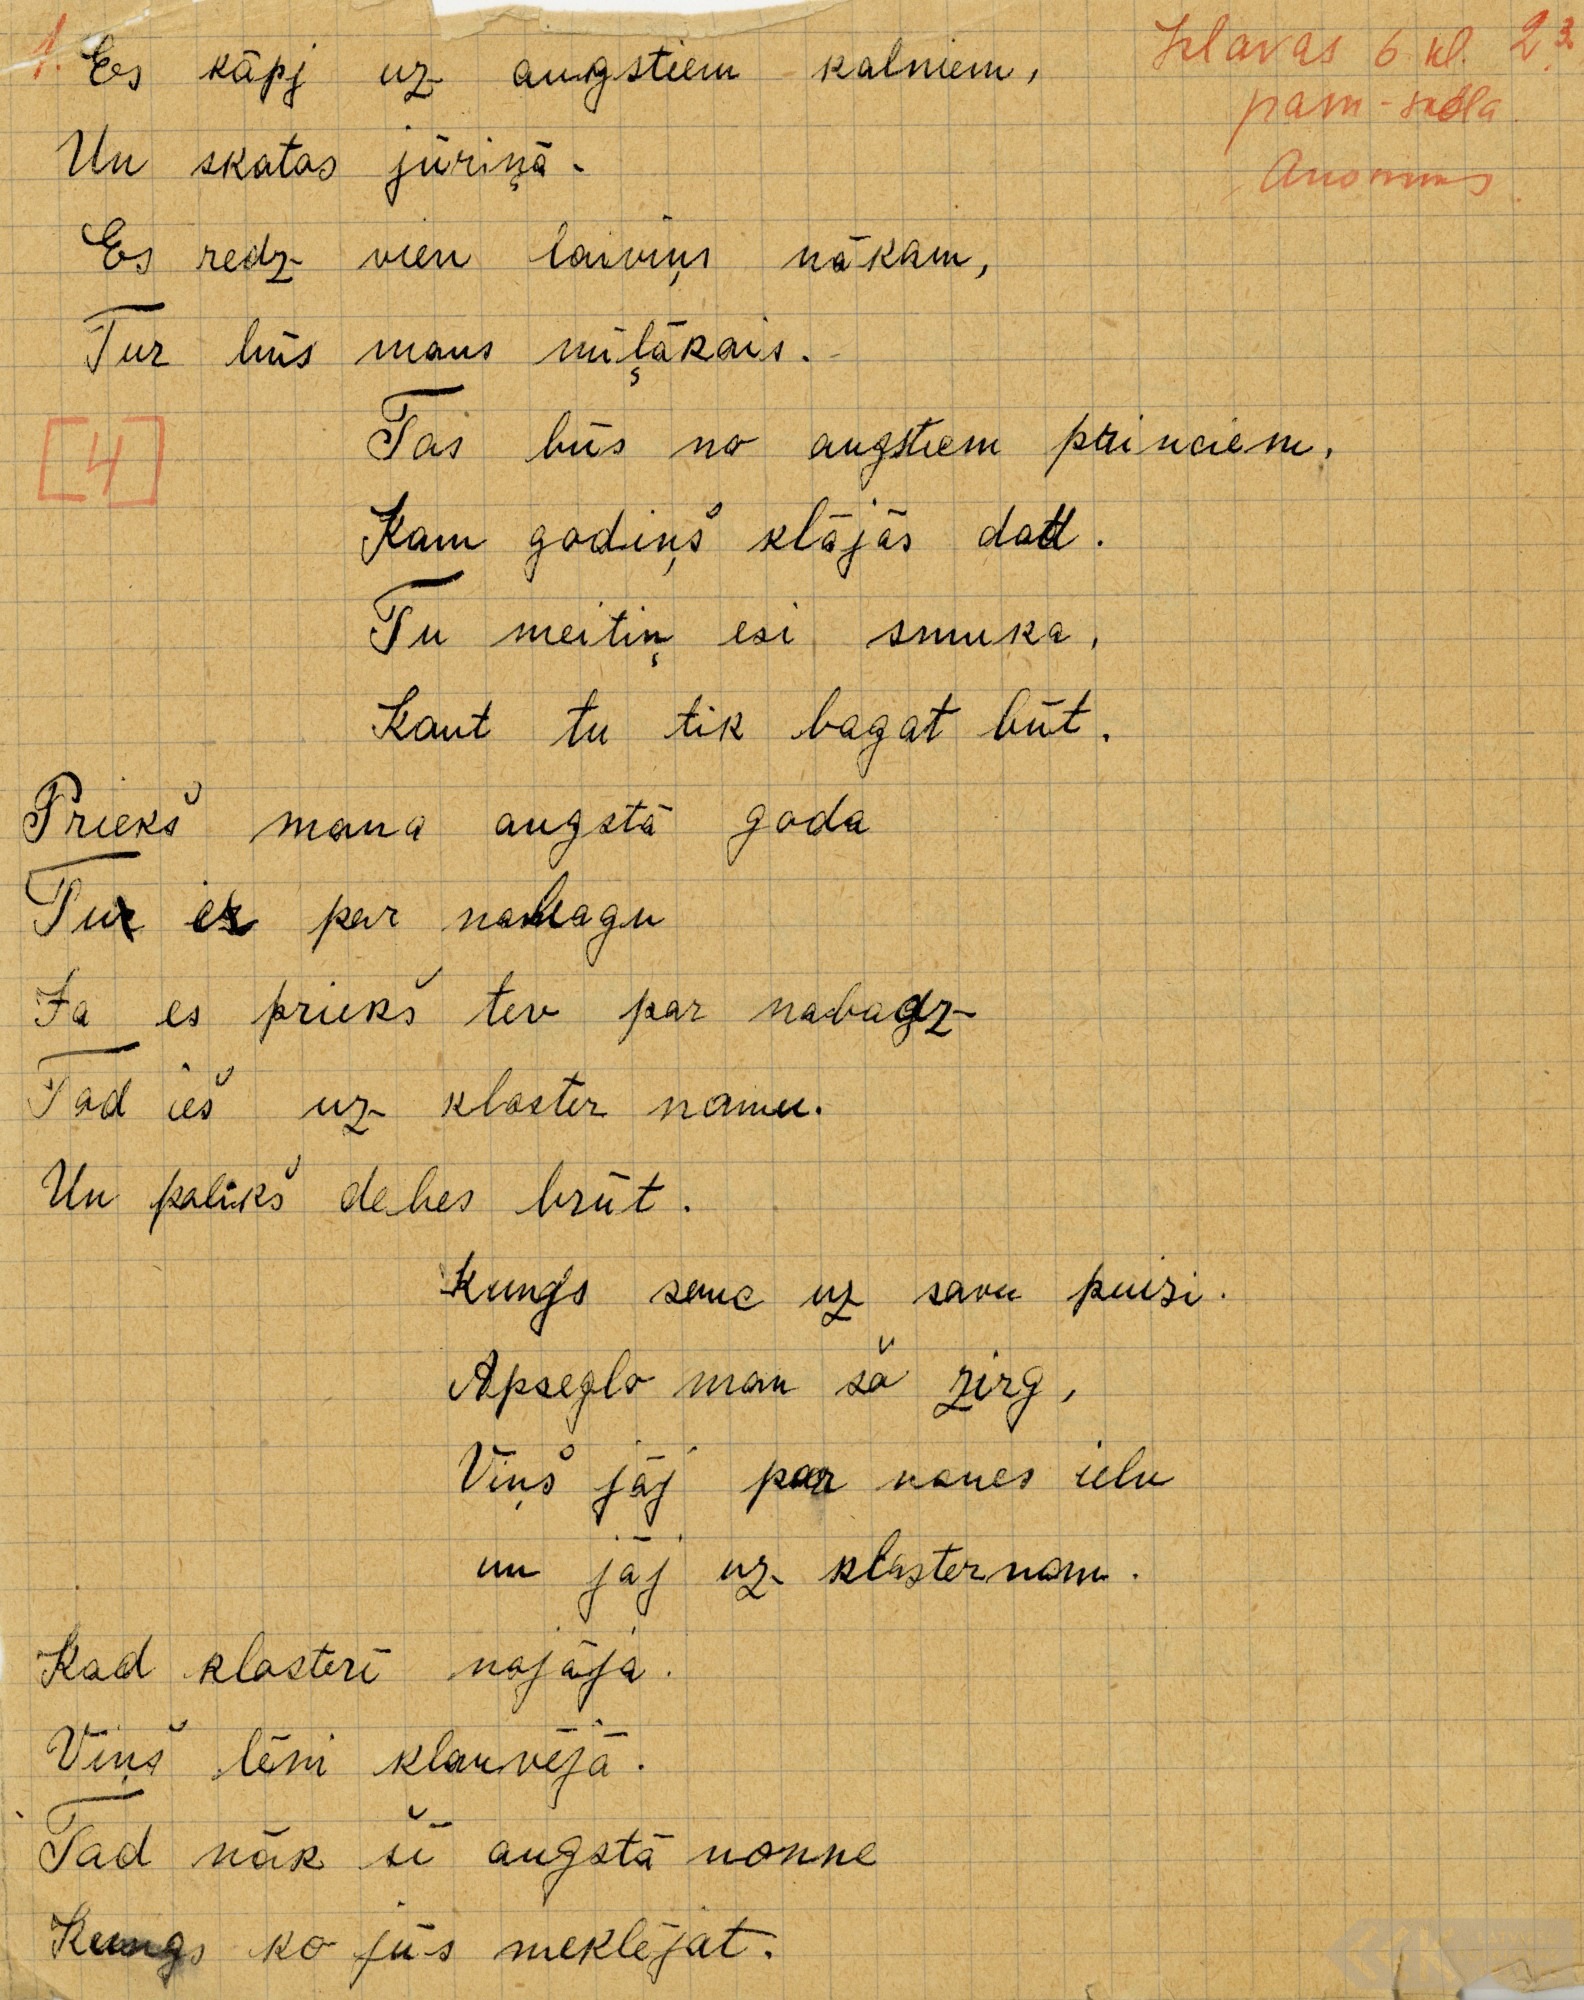 1. Es kāpj uz augstiem kalniem,
Izlavas 6 kl. 2.
pam-skola
Anonims
Un skatas jūriņā.
Es redz vien laiviņs nākam,
Tur būs mans mīļākais.
[4]
Tas būs no augstiem princiem,
Kam godiņš klājās dad.
Tu meitiņ esi smuka,
Kaut tu tik bagat būt.
Priekš mana augstā goda
Tu es par nabagu
Ja es priekš tev par nabagz
Tad ieš uz kloster namu.
Un palikš debes brūt.
Kungs sauc uz savu puisi.
Apseglo man šo zirg,
Viņš jāj par nones ielu
un jāj uz klosternam.
Kad klosterī nojāja.
Viņš lēni klauvējā.
Tad nāk šī augstā nonne
Kungs ko jūs meklējat.